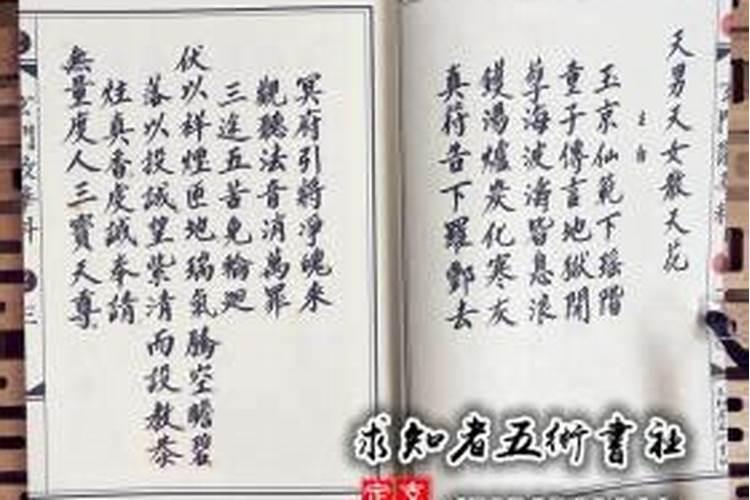 天男天女散天花
玉京仙範下瑶階
童子傳言地獄開
孽海波濤皆息浪
鑊湯爐炭化寒灰
真符告下羅酆去
冥府引將凈魄來
觀聽法音消萬罪
三途五苦免輪廻
伏以祥煙匝地瑞氣騰空瞻碧
落以投誠望紫清而設教恭
炷真香虔誠奉請
無量度人三寶天尊
三
求知者五術書社